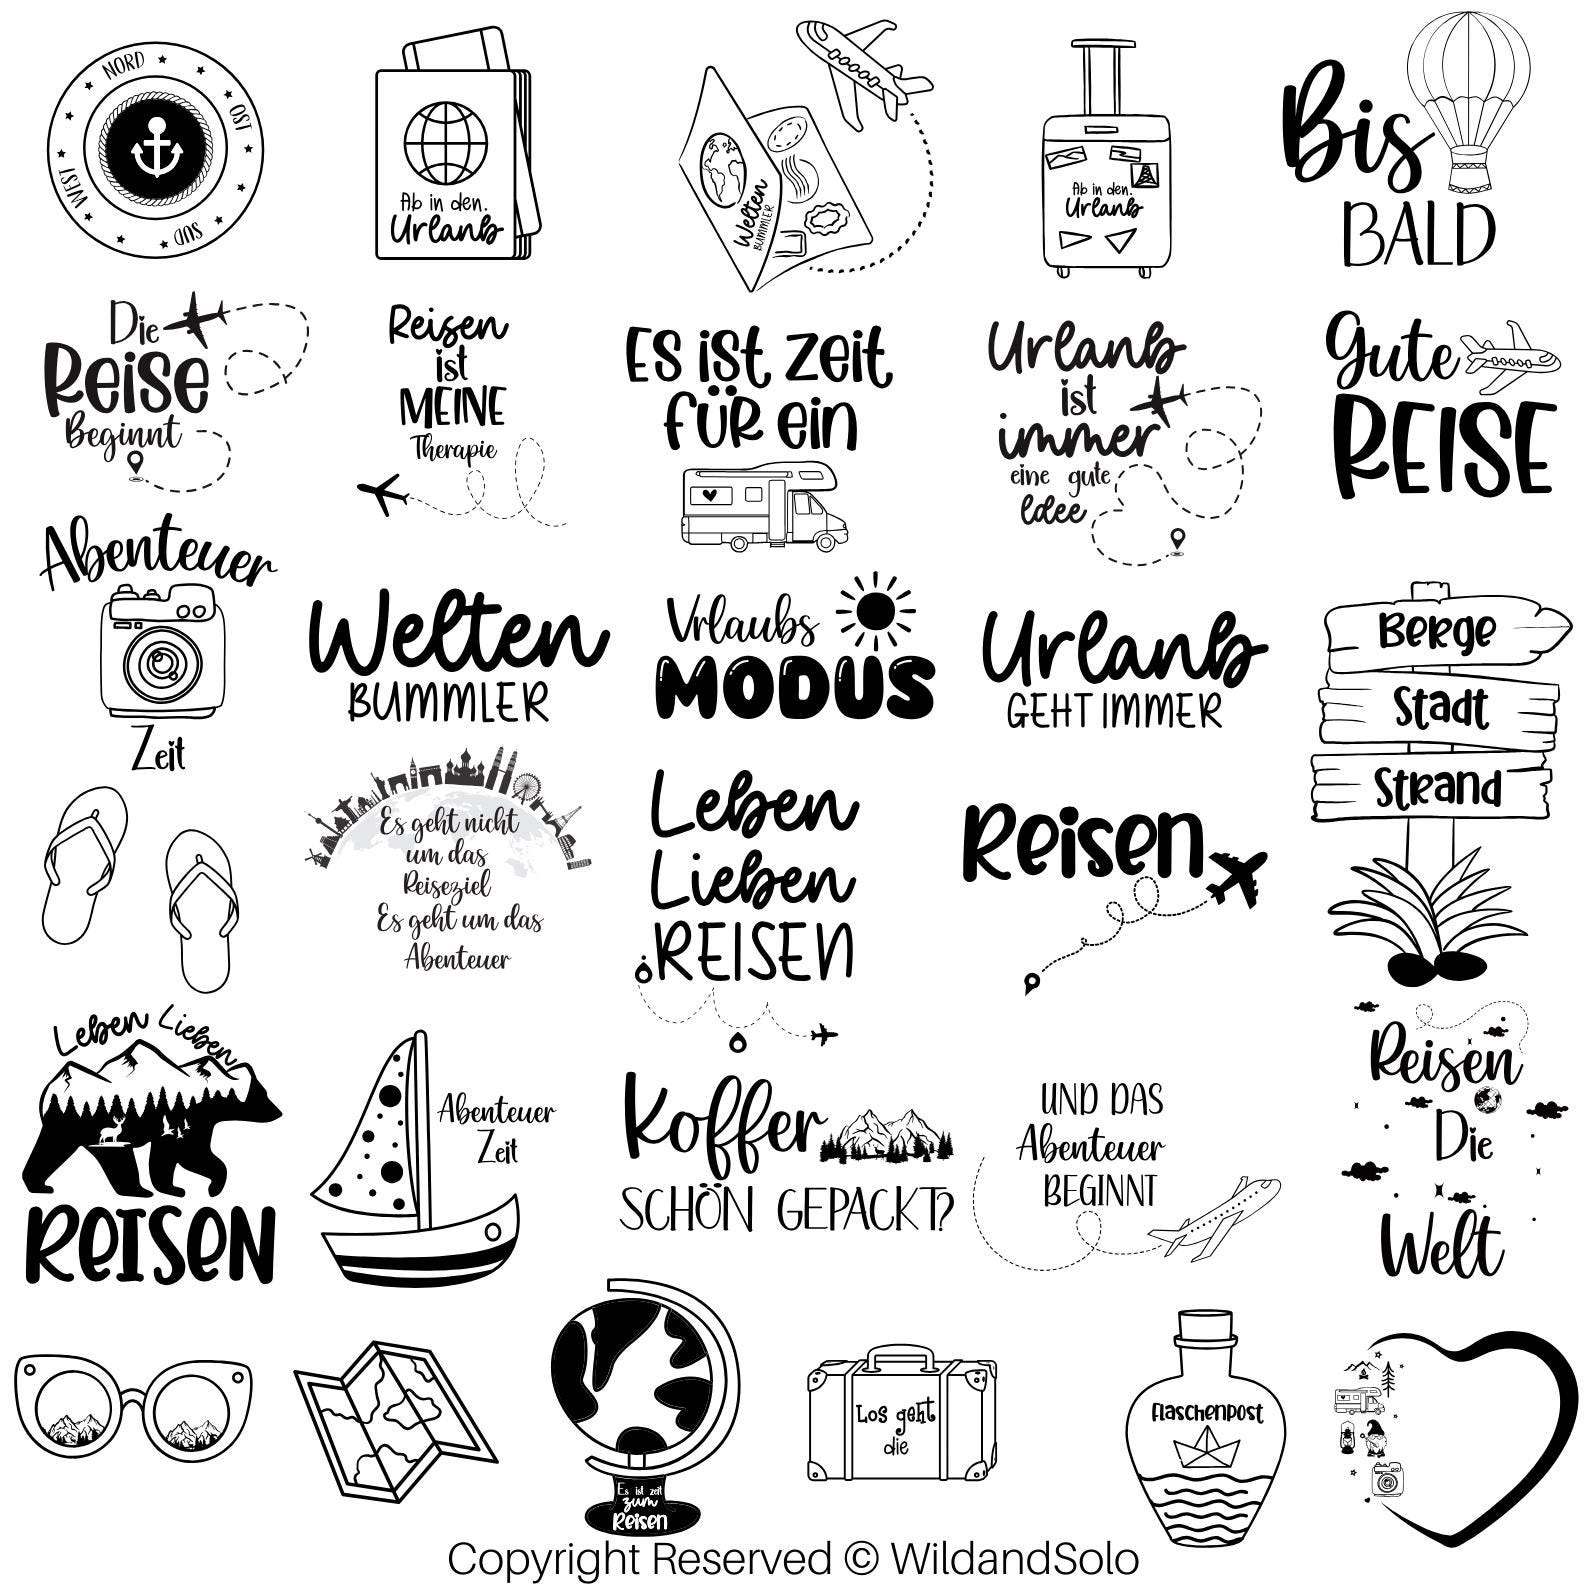 NORD
OST
SUD
WEST
Ab in den.
Urlaub
Welten
BUMMLER
Ab in den.
Urlaub
Bis
BALD
Die
Reise
Beginnt
Reisen
ist
MEINE
Therapie
Es ist zeit
für ein
Urlaub
ist
immer
eine gute
Idee
Gute
REISE
Abenteuer
Zeit
Welten
BUMMLER
Urlaubs
MODUS
Urlaub
GEHT IMMER
Berge
Stadt
Strand
Es geht nicht
um das
Reiseziel
Es geht um das
Abenteuer
Leben
Lieben
REISEN
Reisen
Leben Lieben
REISEN
Abenteuer
Zeit
Koffer
SCHÖN GEPACKT?
UND DAS
Abenteuer
BEGINNT
Reisen
Die
Welt
Es ist zeit
zum
Reisen
Los geht
die
flaschenpost
Copyright Reserved © WildandSolo